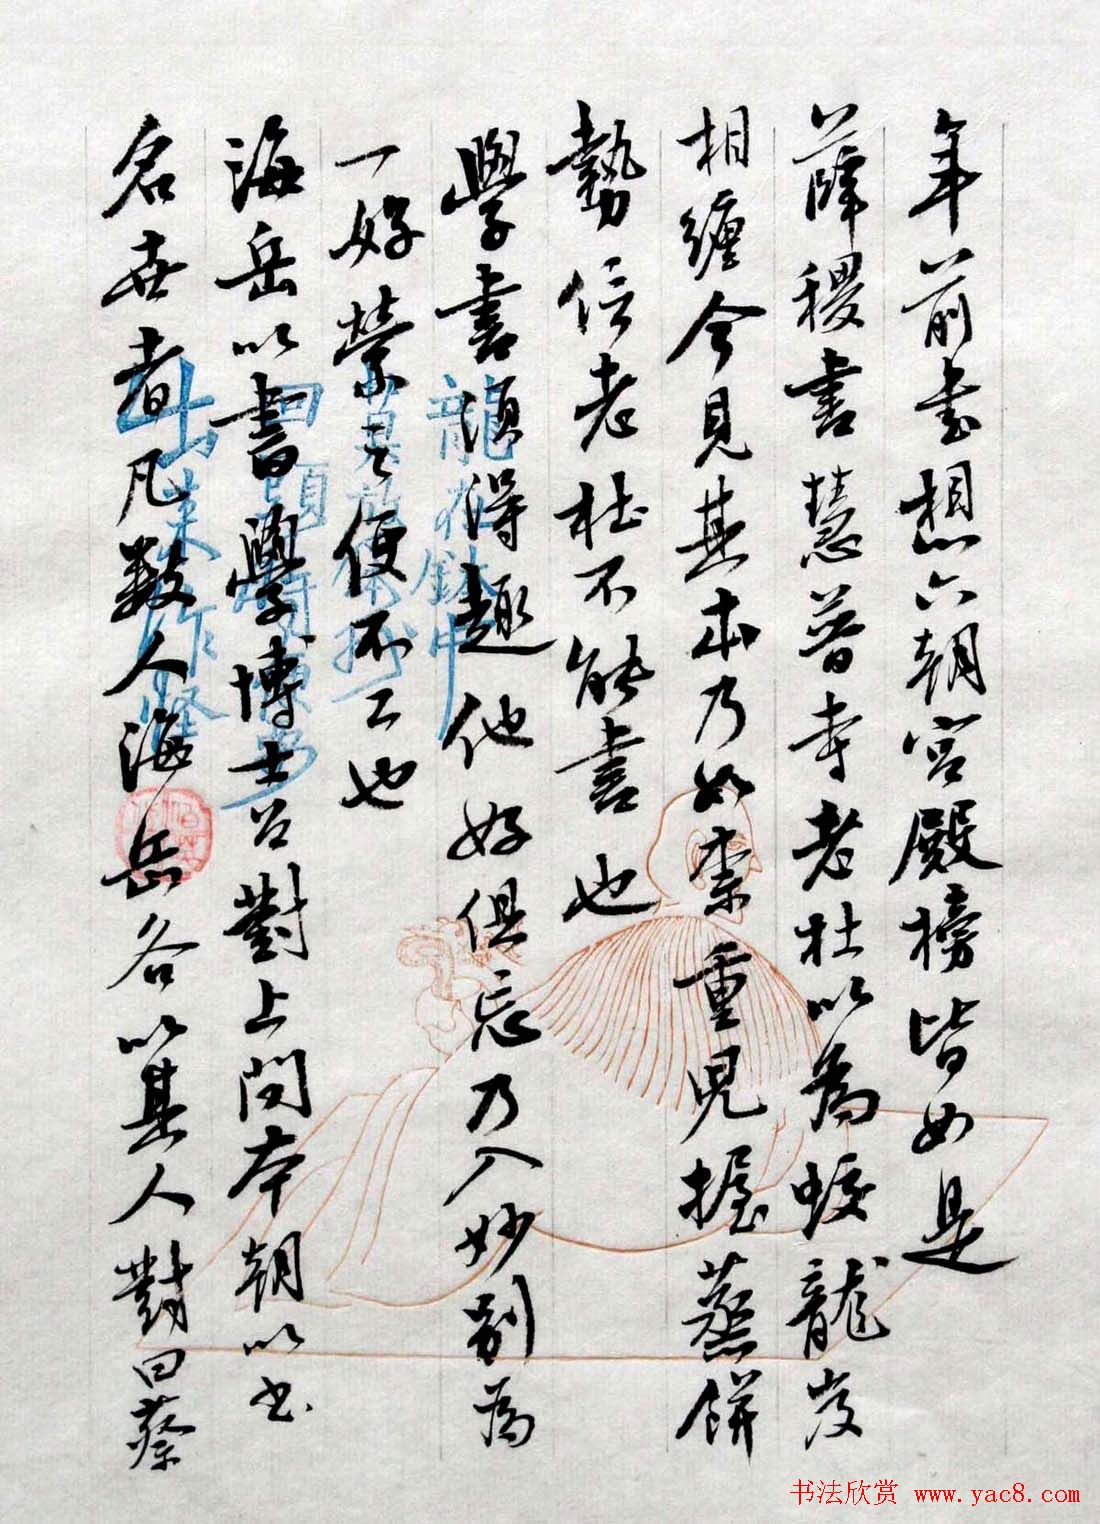 年前書想六朝宮殿榜皆如是
薛稷書慧普寺老杜以為蛟龍岌
相纏今見其本乃如柰重兒握蒸餅
勢信老杜不能書也
學書須得趣他好俱忘乃入妙別為
一好縈之便不工也
海岳以書學博士召對上問本朝以書
名世者凡數人海岳各以其人對曰蔡
书法欣赏 www.yac8.com